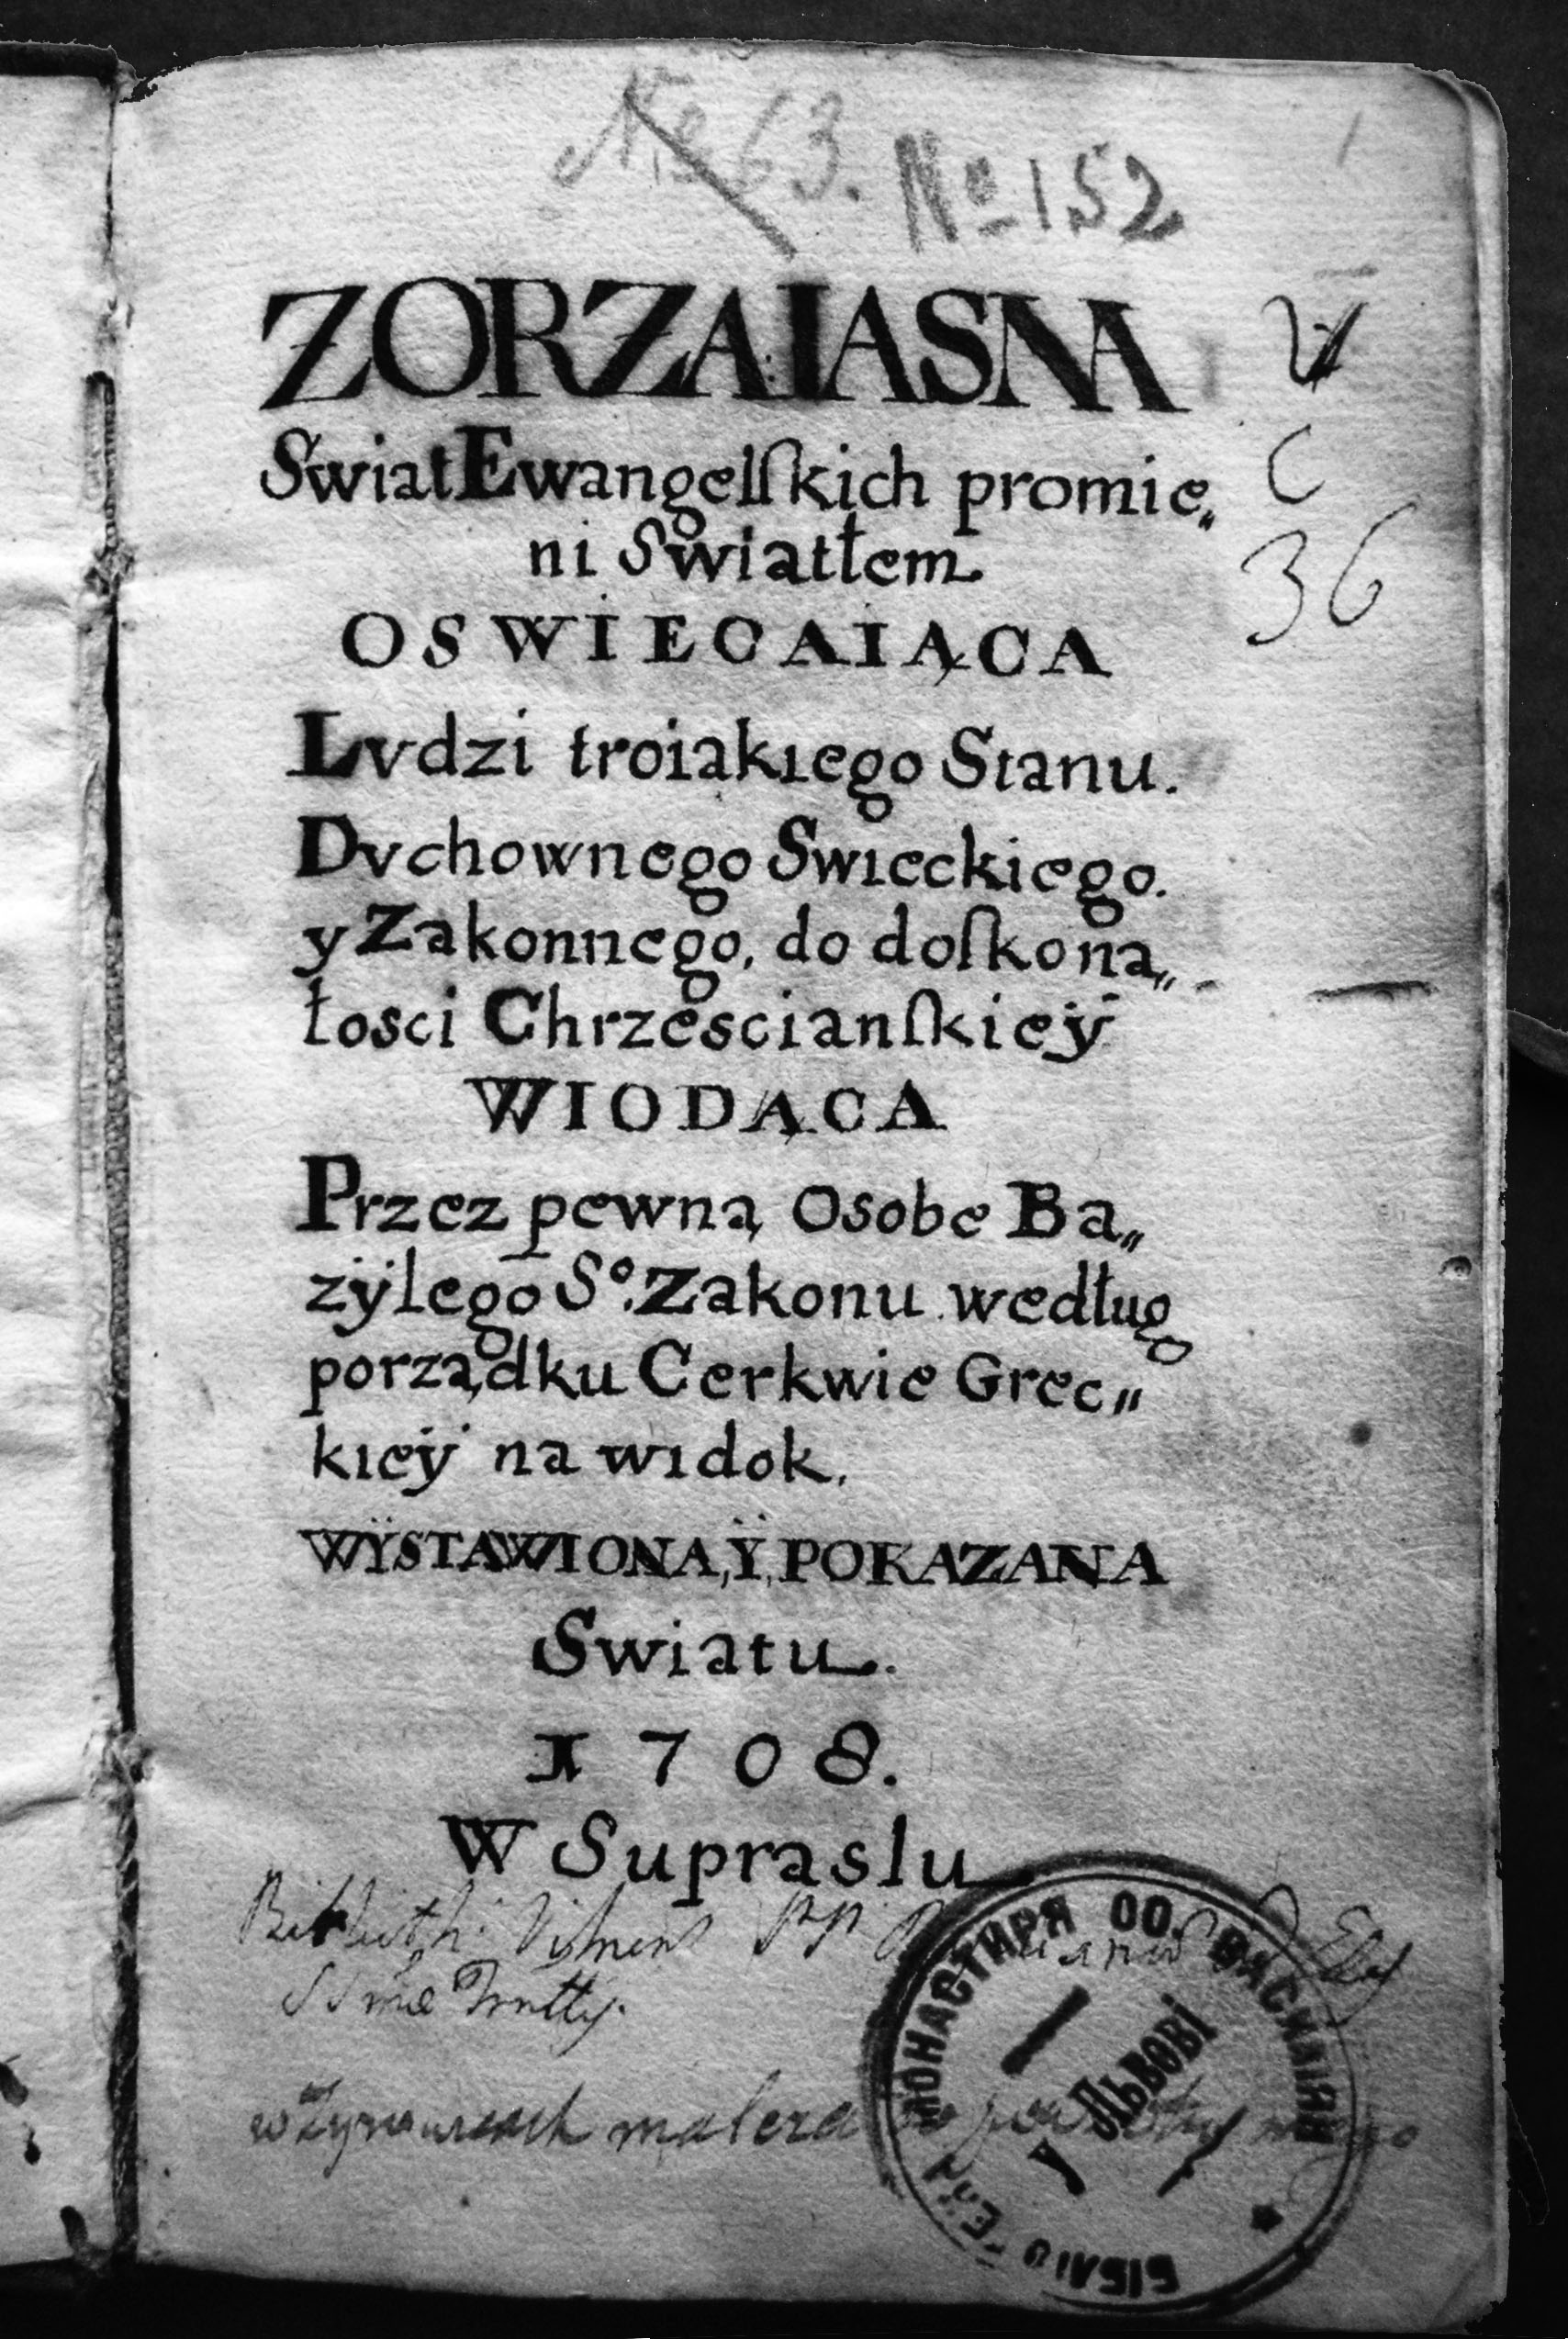 № 63. № 152
ZORZA IASNA
Swiat Ewangelſkich promie„
ni Swiatłem.
OSWIECAIĄCA
Lvdzi troiakiego Stanu.
Dvchownego Swieckiego.
y Zakonnego, do doſkona„
łosci Chrzescianſkieÿ
WIODĄCA
Przez pewną Osobe Ba„
zÿlego Sº. Zakonu według
porządku Cerkwie Grec„
kieÿ na widok.
WŸSTAWIONA, Ÿ, POKAZANA
Swiatu.
1708.
W Supraslu
C
36
SSmæ
matera
БІБЛІОТЕКА МОНАСТИРЯ ОО. ВАСИЛІЯН
у Львові